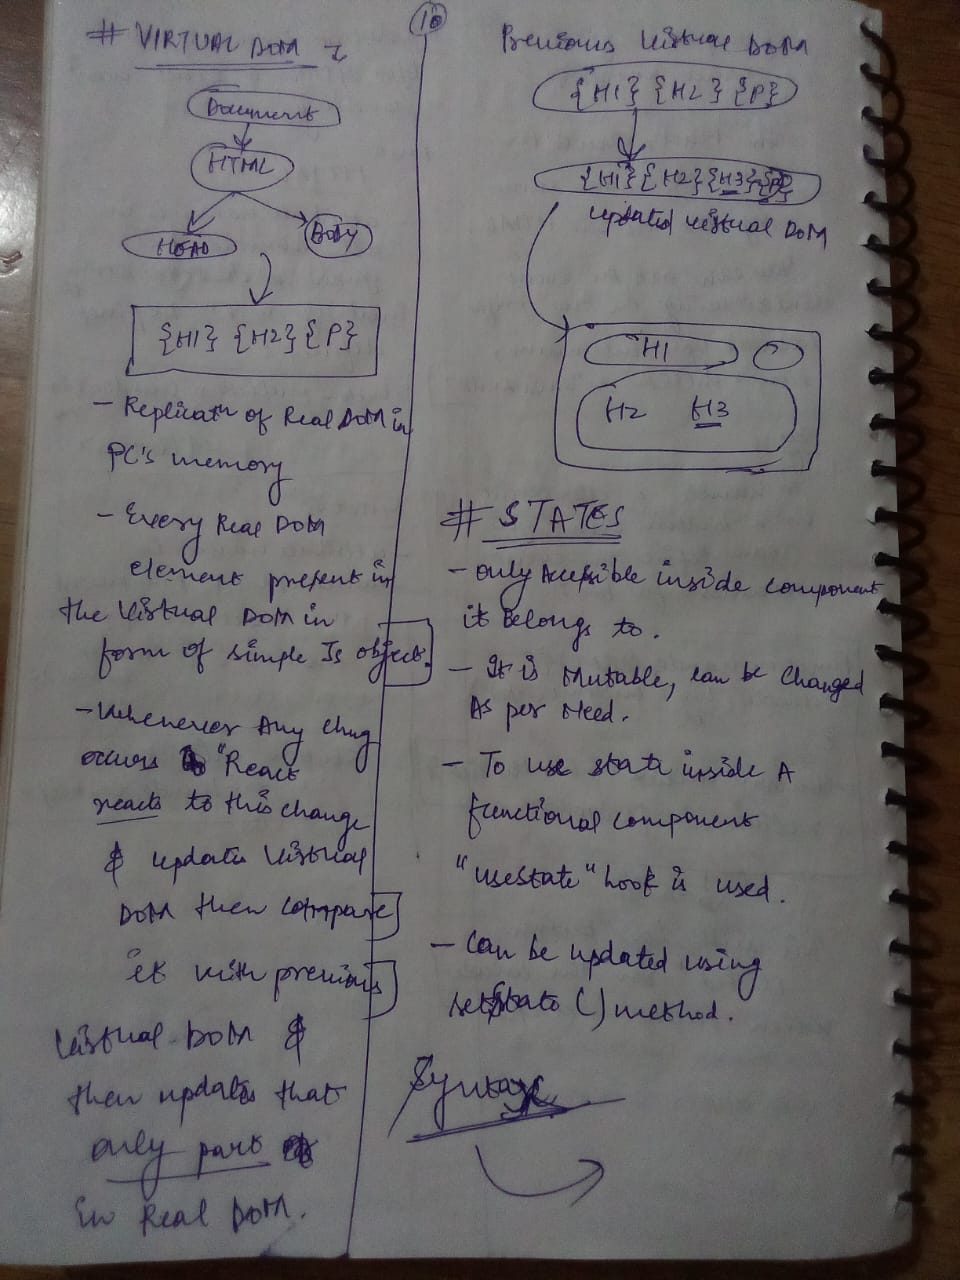 10
# VIRTUAL DOM
Document
HTML
HEAD
BODY
{H1} {H2} {P}
- Replicatn of Real DOM in
PC's memory
- Every Real DOM
element present in
the Virtual DOM in
form of simple Js object.
- Whenever Any chng
occurs "React
reacts to this change
& update Virtual
DOM then compare
it with previous
Virtual DOM &
then updates that
only part
in Real DOM.
Previous Virtual DOM
{H1} {H2} {P}
{H1} {H2} {H3}
updated virtual DOM
H1
H2 H3
# STATES
- only Accessible inside component
it Belongs to.
- It is Mutable, can be Changed
As per Need.
- To use state inside A
functional component
"useState" hook is used.
- Can be updated using
setState () method.
Syntax